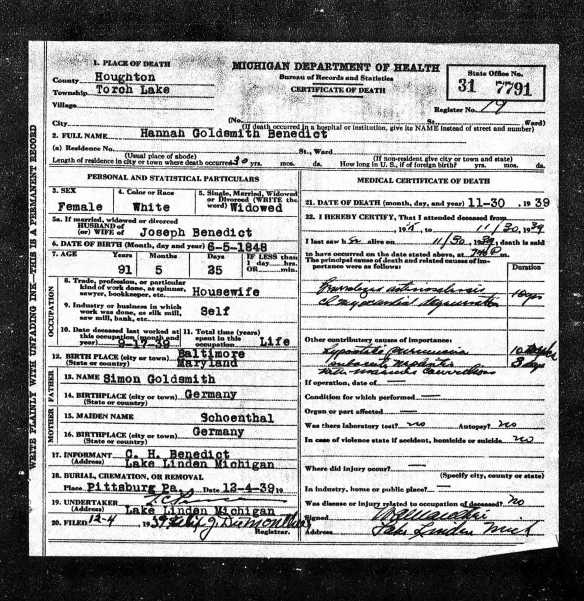 1. PLACE OF DEATH
County Houghton
Township Torch Lake
Village
City
MICHIGAN DEPARTMENT OF HEALTH
Bureau of Records and Statistics
CERTIFICATE OF DEATH
State Office No.
31 7791
Register No. 19
(No. St., Ward)
(If death occurred in a hospital or institution, give its NAME instead of street and number)
2. FULL NAME Hannah Goldsmith Benedict
(a) Residence No. St., Ward
(Usual place of abode) (If non-resident give city or town and state)
Length of residence in city or town where death occurred 30 yrs. mos. ds. How long in U. S., if of foreign birth? yrs. mos. ds.
WRITE PLAINLY WITH UNFADING INK—THIS IS A PERMANENT RECORD
PERSONAL AND STATISTICAL PARTICULARS
3. SEX
Female
4. Color or Race
White
5. Single, Married, Widowed
or Divorced (WRITE the
word) Widowed
5a. If married, widowed or divorced
HUSBAND of
(or) WIFE of Joseph Benedict
6. DATE OF BIRTH (Month, day and year) 6-5-1848
7. AGE Years Months Days IF LESS than
1 day ___hrs.
OR ___min.
91 5 25
OCCUPATION
8. Trade, profession, or particular
kind of work done, as spinner,
sawyer, bookkeeper, etc. Housewife
9. Industry or business in which
work was done, as silk mill,
saw mill, bank, etc. Self
10. Date deceased last worked at
this occupation (month and
year) 9-17-39
11. Total time (years)
spent in this
occupation Life
12. BIRTH PLACE (city or town) Baltimore
(State or country) Maryland
FATHER
13. NAME Simon Goldsmith
14. BIRTHPLACE (city or town) Germany
(State or country)
MOTHER
15. MAIDEN NAME Schoenthal
16. BIRTHPLACE (city or town) Germany
(State or country)
17. INFORMANT C. H. Benedict
(Address) Lake Linden Michigan
18. BURIAL, CREMATION, OR REMOVAL
Place Pittsburg Pa. Date 12-4-39 19
19. UNDERTAKER
(Address) Lake Linden Michigan
20. FILED 12-4 1939
Registrar.
MEDICAL CERTIFICATE OF DEATH
21. DATE OF DEATH (month, day, and year) 11-30, 1939
22. I HEREBY CERTIFY, That I attended deceased from
, 19 to 11/30, 1939
I last saw h er alive on 11/30, 1939, death is said
to have occurred on the date stated above, at m.
The principal cause of death and related causes of im-
portance were as follows:
Duration
arteriosclerosis
myocardial degeneration
Other contributory causes of importance:
Hypostatic pneumonia
3 days
If operation, date of —
Condition for which performed —
Organ or part affected —
Was there laboratory test? no Autopsy? no
In case of violence state if accident, homicide or suicide. no
Where did injury occur? —
(Specify city, county or state)
In industry, home or public place? —
Was disease or injury related to occupation of deceased? no
Signed
Address Lake Linden Mich